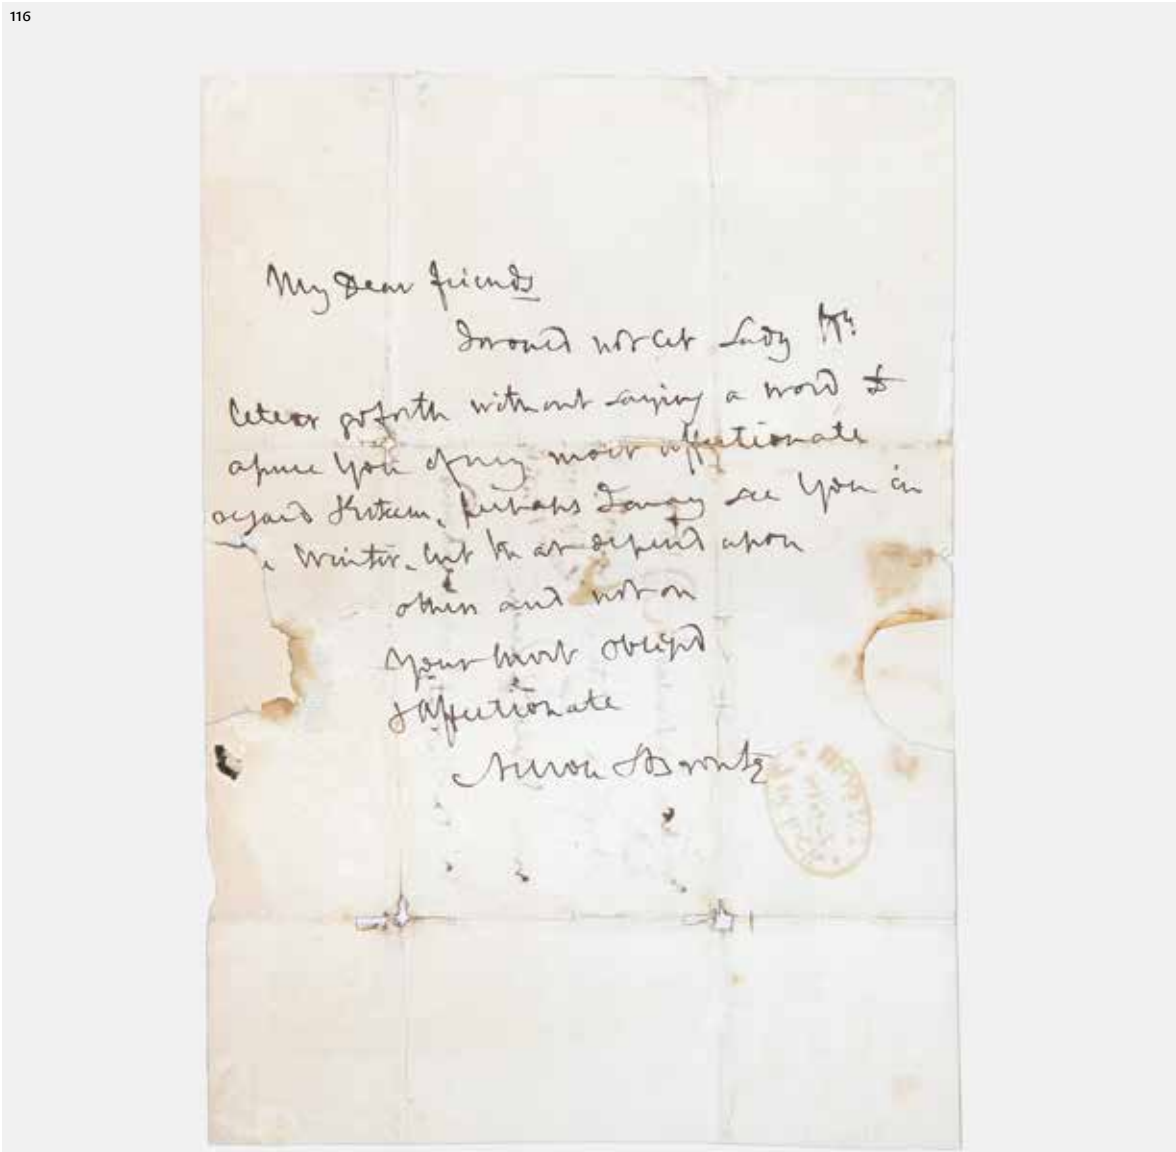 116
My Dear friends
I would not let Lady Hn
letter go forth without saying a word to
assure you of my most affectionate
regard & Esteem, perhaps I may see you in
Winter, but that depend upon
others and not on
your most obliged
& affectionate
Nelson & Bronte